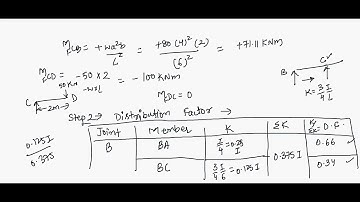 MFCB = + wa²b / L² = +80 (4)² (2) / (6)² = +71.11 KNm
MFCD = -50 × 2 = -100 KNm
-W×L
50 KN
C D
k-2m→
MFDC = 0
B C
K = 3/4 I/L
Step 2 → Distribution Factor →
0.125I / 0.375
Joint Member K ΣK K/ΣK = D.F.
B BA I/4 = 0.25I 0.375I 0.66 ✓
BC 3/4 I/6 = 0.125I 0.34 ✓